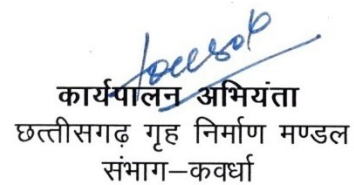 कार्यपालन अभियंता
छत्तीसगढ़ गृह निर्माण मण्डल
संभाग–कवर्धा